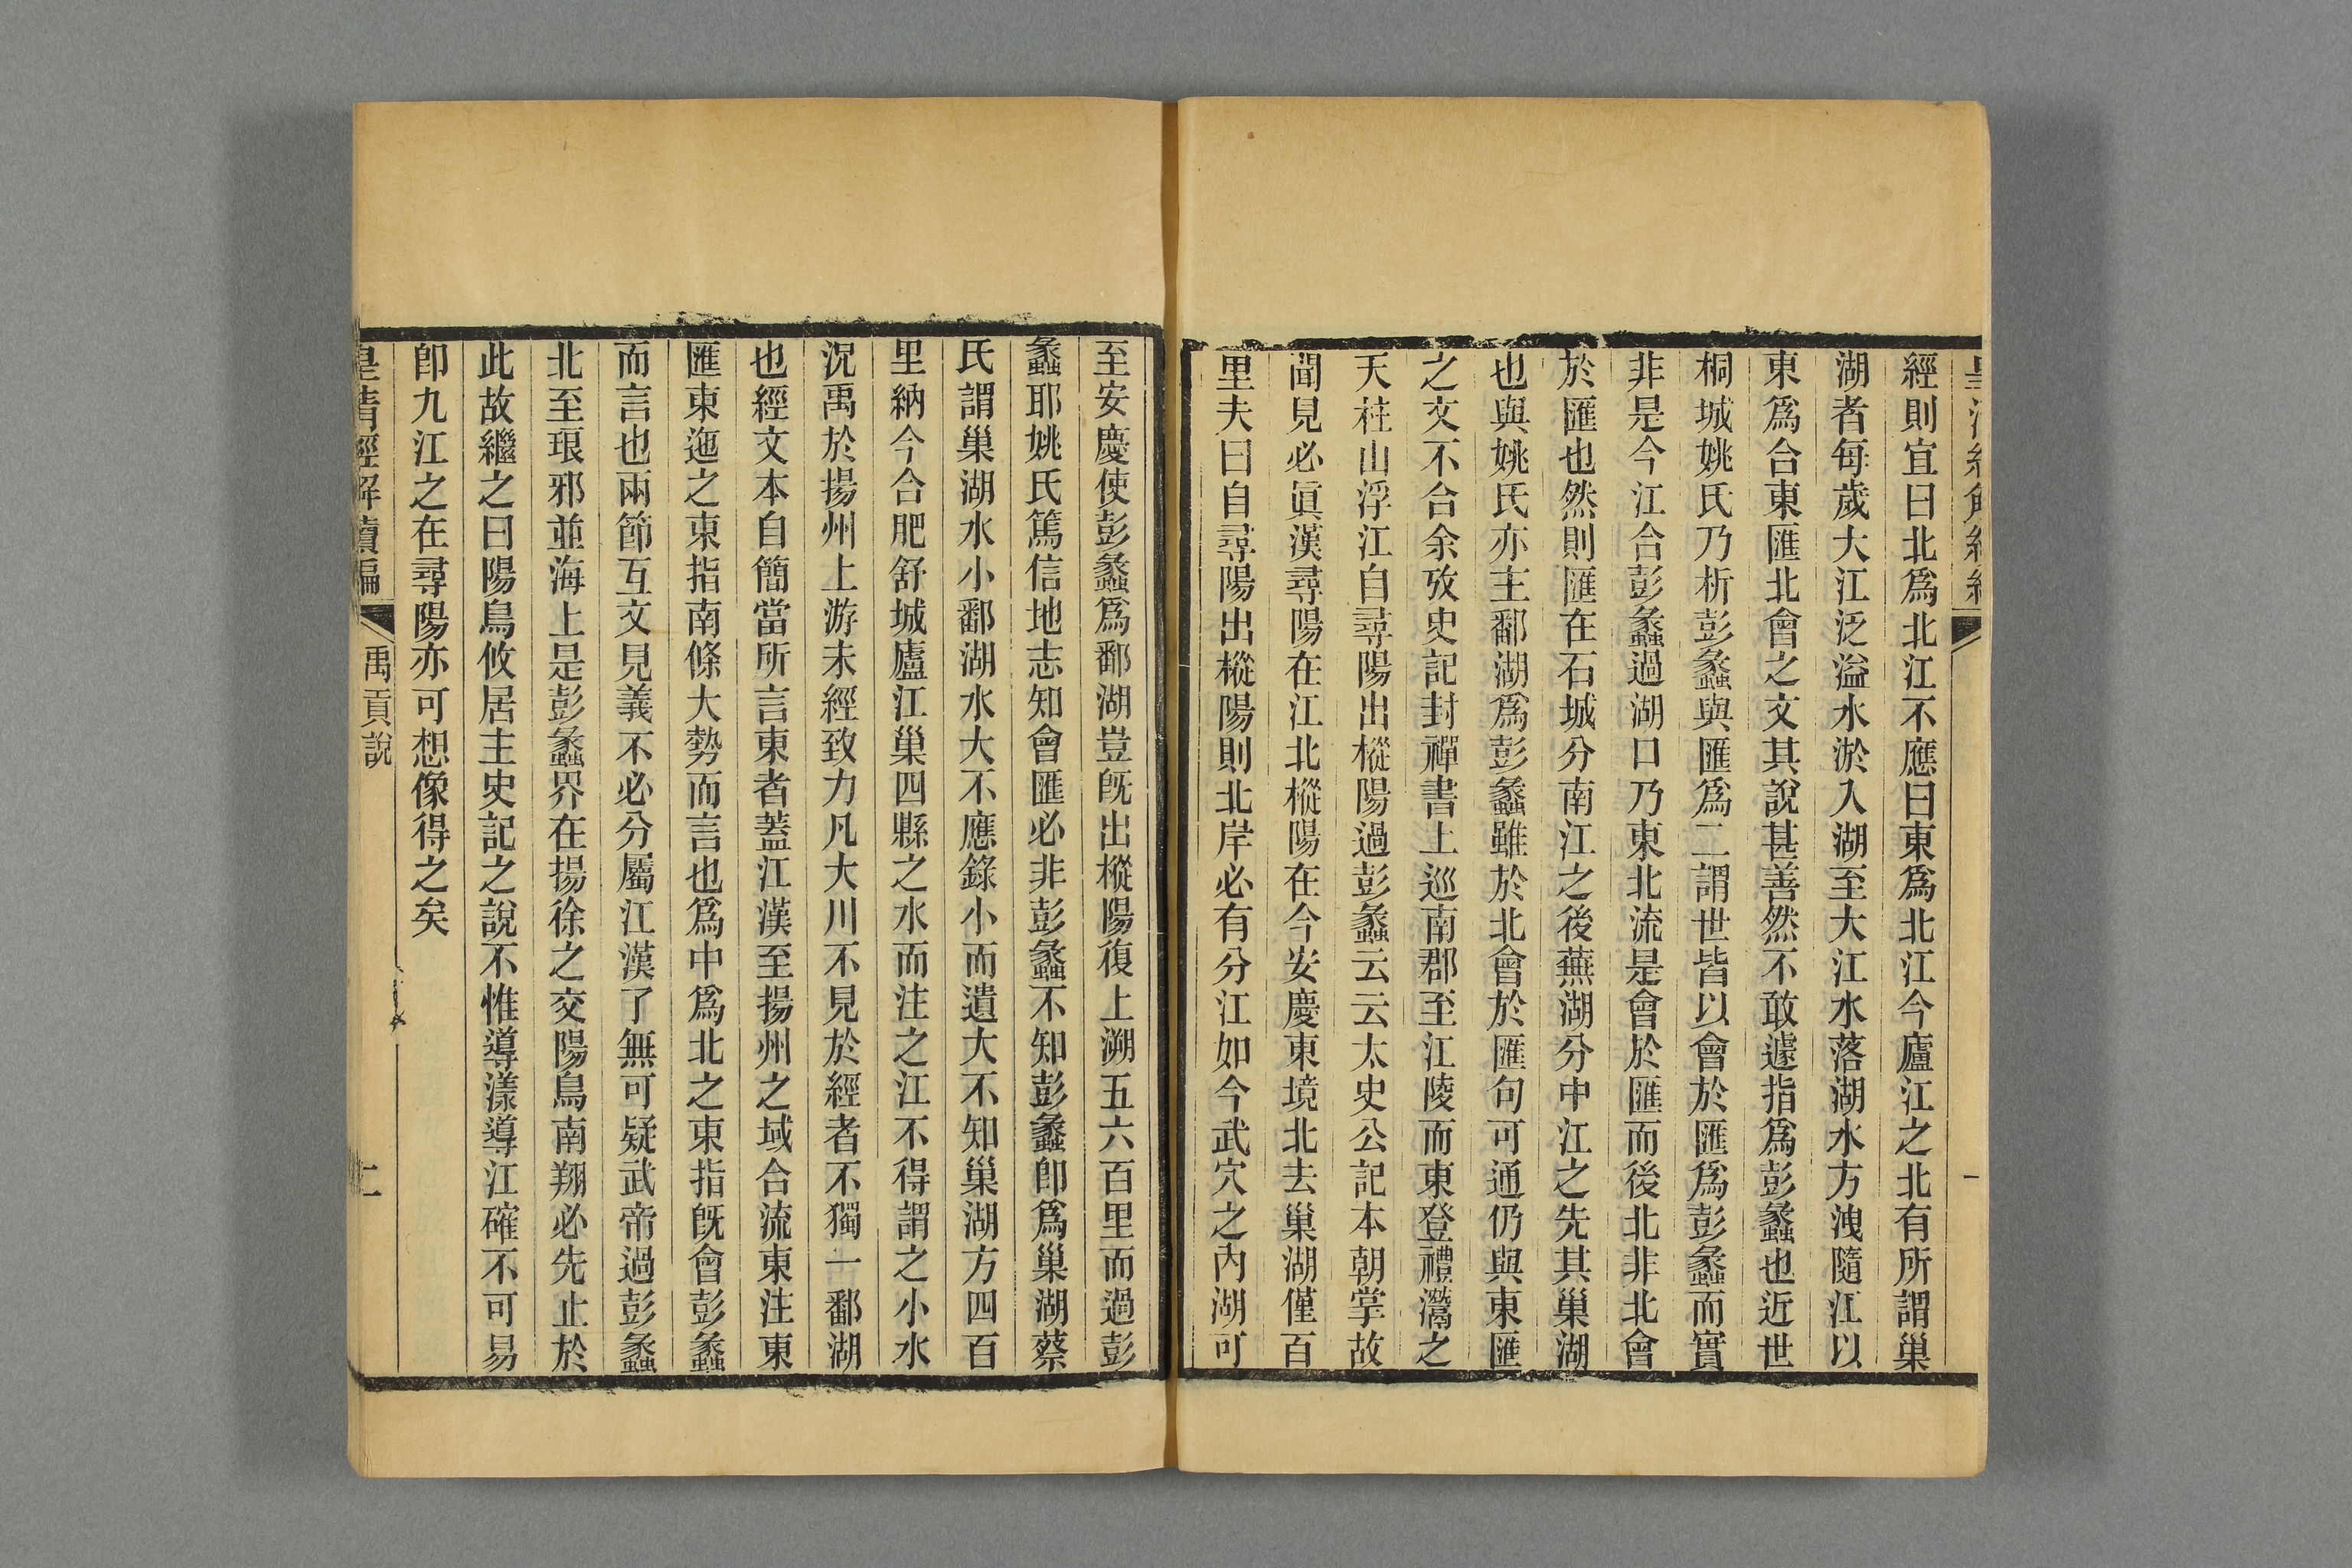 經則宜曰北爲北江不應曰東爲北江今廬江之北有所謂巢
湖者每歲大江泛溢水淤入湖至大江水落湖水方洩隨江以
東爲合東匯北會之文其說甚善然不敢遽指爲彭蠡也近世
桐城姚氏乃析彭蠡與匯爲二謂世皆以會於匯爲彭蠡而實
非是今江合彭蠡過湖口乃東北流是會於匯而後北非北會
於匯也然則匯在石城分南江之後蕪湖分中江之先其巢湖
也與姚氏亦主鄱湖爲彭蠡雖於北會於匯句可通仍與東匯
之文不合余攷史記封禪書上巡南郡至江陵而東登禮灊之
天柱山浮江自尋陽出樅陽過彭蠡云云太史公記本朝掌故
聞見必眞漢尋陽在江北樅陽在今安慶東境北去巢湖僅百
里夫曰自尋陽出樅陽則北岸必有分江如今武穴之內湖可
至安慶使彭蠡爲鄱湖豈旣出樅陽復上溯五六百里而過彭
蠡耶姚氏篤信地志知會匯必非彭蠡不知彭蠡卽爲巢湖蔡
氏謂巢湖水小鄱湖水大不應錄小而遺大不知巢湖方四百
里納今合肥舒城廬江巢四縣之水而注之江不得謂之小水
況禹於揚州上游未經致力凡大川不見於經者不獨一鄱湖
也經文本自簡當所言東者蓋江漢至揚州之域合流東注東
匯東迤之東指南條大勢而言也爲中爲北之東指旣會彭蠡
而言也兩節互文見義不必分屬江漢了無可疑武帝過彭蠡
北至琅邪並海上是彭蠡界在揚徐之交陽鳥南翔必先止於
此故繼之曰陽鳥攸居主史記之說不惟導漾導江確不可易
卽九江之在尋陽亦可想像得之矣
皇清經解續編 禹貢說 二